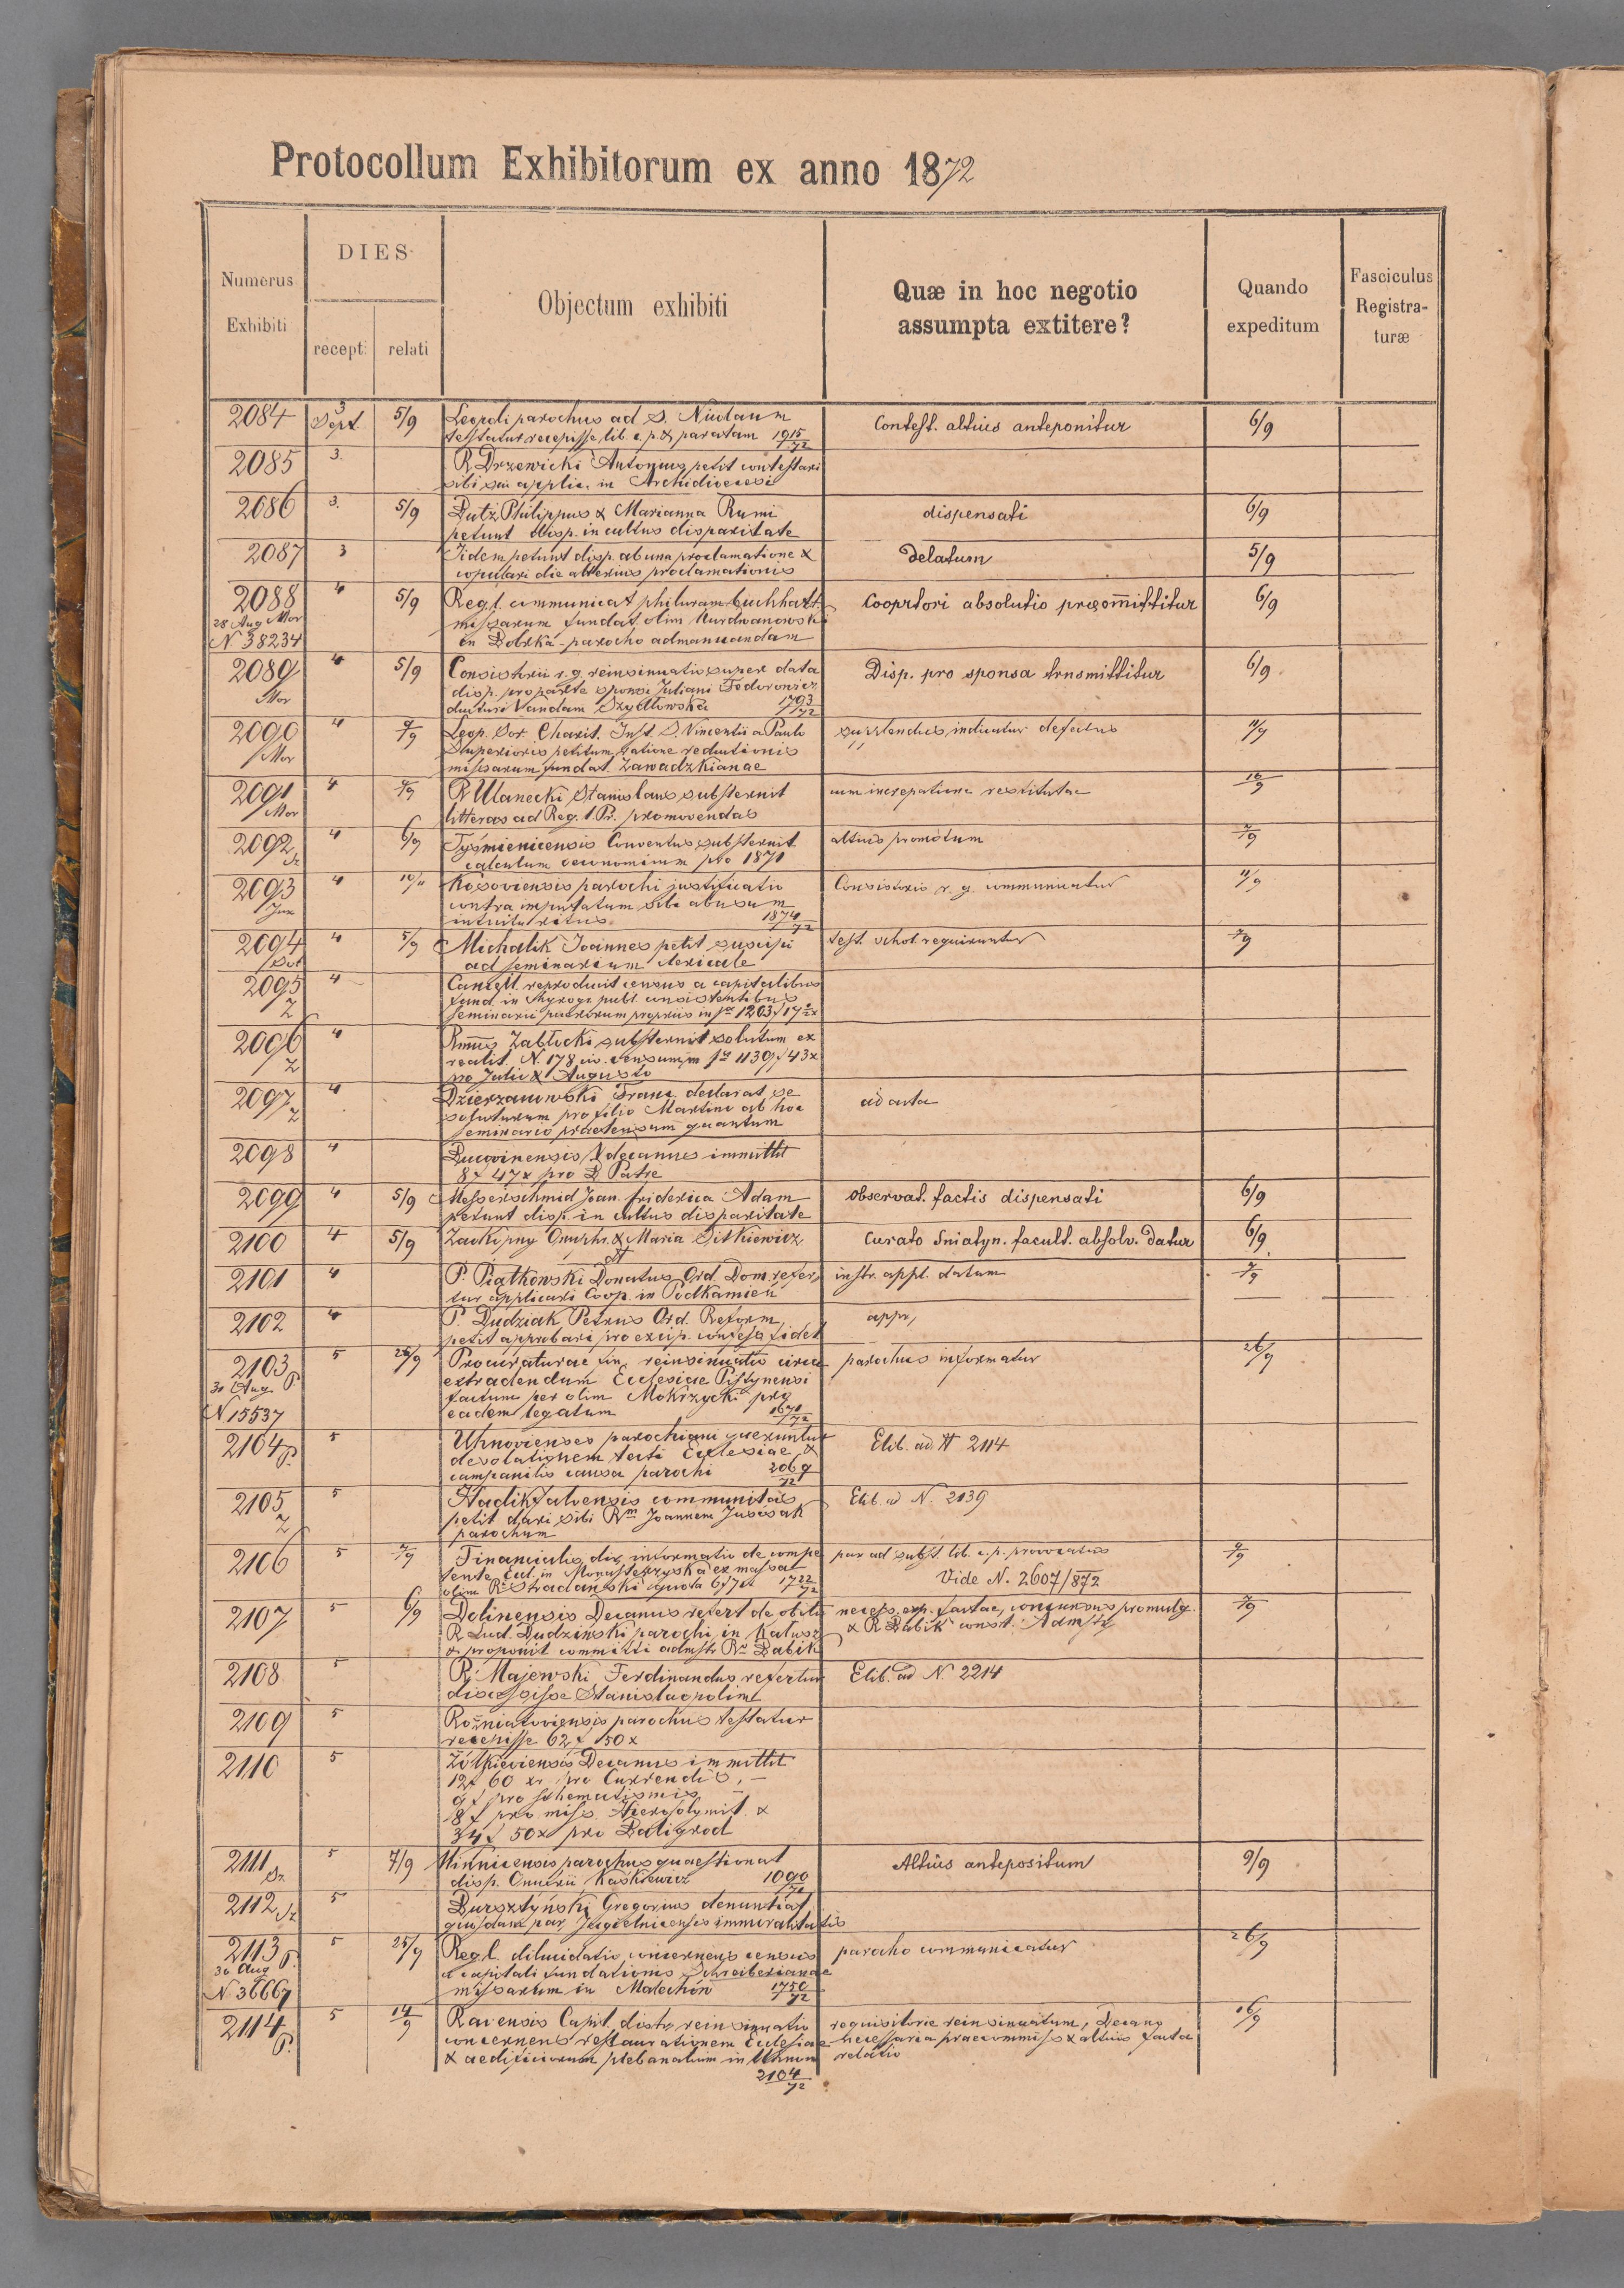 Protocollum Exhibitorum ex anno 1872
Numerus Exhibiti
DIES
recepti
relati
Objectum exhibiti
Quæ in hoc negotio
assumpta extitere?
Quando
expeditum
Fasciculus
Registra-
turæ
2084 3 Sept. 5/9 Leopoli parochus ad S. Nicolaum Contest. altius anteponitur 6/9
testatur recepisse lib. 1915/72
2085 3. R. Drzewicki Antonius petit contestari
sibi applic. in Archidiecesi
2086 3. 5/9 Dutz Philippus & Marianna Rumi dispensati 6/9
petunt disp. in cultus disparitate
2087 3 Iidem petunt disp. ab una proclamatione & delatum 5/9
copulari die alterius proclamationis
2088 4 5/9 Reg. l. communicat 6/9
28 Aug Mor missarum fundat. olim
N 38234 parocho
2089 4 5/9 Consistorii r. g. reinsinuatio super data Disp. pro sponsa trnsmittitur 6/9
Mor disp. pro parte sponsi Juliani Fedorowicz
ducturi Vandam Szydłowska 1793/72
2090 4 9/9 Leop. Sor. Charit. Inst. S. Vincentii a Paulo indicatur defectus 11/9
Mor Superioris petitum ratione reductionis
missarum fundat. Zawadzkianae
2091 4 R Ulanecki Stanislaus substernit cum increpatione restitutae
Mor litteras ad Reg. l. Pr. promovendas
2092 4 6/9 Tyśmienicensis Conventus substernit altius promotum 7/9
calculum oeconomicum pro 1871
2093 4 10/9 Kosoviensis parochi justificatio Consistorio r. g. communicatur 11/9
contra imputatum sibi abusum
intuitu ritus 1874/72
2094 4 5/9 Michalik Joannes petit suscipi test. schol. requiruntur 7/9
ad seminarium clericale
2095 4 Cancell. reproducit census a capitalibus
Z fund. in
seminarii puerorum propriis in
2096 4 Rmus Zabłocki substernit solutum ex
Z realit. N. 178 in 1139 f 43x
pro Julio & Augusto
2097 4 Dzierzanowski Franc. declarat se ad acta
Z soluturum pro filio Martino ab hoc
seminario praetensum quantum
2098 4 Bucovinensis Vdecanus immittit
8 f 47x pro S Patre
2099 4 5/9 Messerschmid Joan. Friderica Adam observat. factis dispensati 6/9
petunt disp. in cultus disparitate
2100 4 5/9 Onuphr. & Maria Sitkiewicz Curato Sniatyn. facult. absolv. datur 6/9
2101 4 P. Piatkowski Donatus Ord. Dom. refer instr. appl. datum 7/9
tur applicari Coop. in Podkamień
2102 4 P. Dudziak Petrus Ord. Reform. appr,
petit approbari pro excip. confess. fidel
2103 5 26/9 Procuraturae fin. reinsinuatio circa parochus informatur 26/9
30 Aug. P. extradendum Ecclesiae Pistynensi
N 15537 factum per olim Mokrzycki pro
eadem legatum 1671/72
2104 P. 5 Uhnovienses parochiani queruntur Elib. ad N 2114
desolationem tecti Ecclesiae &
campanilis causa parochi 2069/72
2105 5 Hadikfalvensis communitas Elib. ad N. 2139
Z petit dari sibi Rm Joannem
parochum
2106 5 7/9 Financialis dir. informatio de compe par ad subst. lib. 9/9
tente in Monasterzyska ex massa Vide N. 2607/872
olim 1722/72
2107 5 6/9 Dolinensis Decanus refert de obitu necess. exp. factae, concursus promulg. 7/9
R. Lud. Dudzinski parochi in Kałusz & R Babik const. Admstr
& proponit committi admstr Rr Babik
2108 5 R. Majewski Ferdinandus refertur Elib. ad N 2214
discessisse Stanislaopolim
2109 5 Rożniatoviensis parochus testatur
recepisse 62 f 50 x
2110 5 Żołkieviensis Decanus immittit
12 f 60 xr pro Currendis, -
9 f pro schematismis -
8 f pro miss. Hierosolymit. &
34 f 50x pro Baligrod
2111 5 7/9 parochus quaestionat Altius antepositum 9/9
disp. Onufrii 1090/72
2112 5 Bursztyński Gregorius denuntiat
par. Jagielnicensis immoralitatis
2113 P. 5 25/9 Reg. l. dilucidatio concernens census parocho communicatur 26/9
30 Aug a capitali fundationis Schreiberianae
N 36667 missarum in Malechów 1750/72
2114 5 14/9 Ravensis Capit. distr. reinsinuatio requisitorie reinsinuatum, Decano 16/9
P. concernens restaurationem Ecclesiae necessaria praecommissa & altius facta
& aedificiorum plebanalium in Uhnow relatio
2104/72